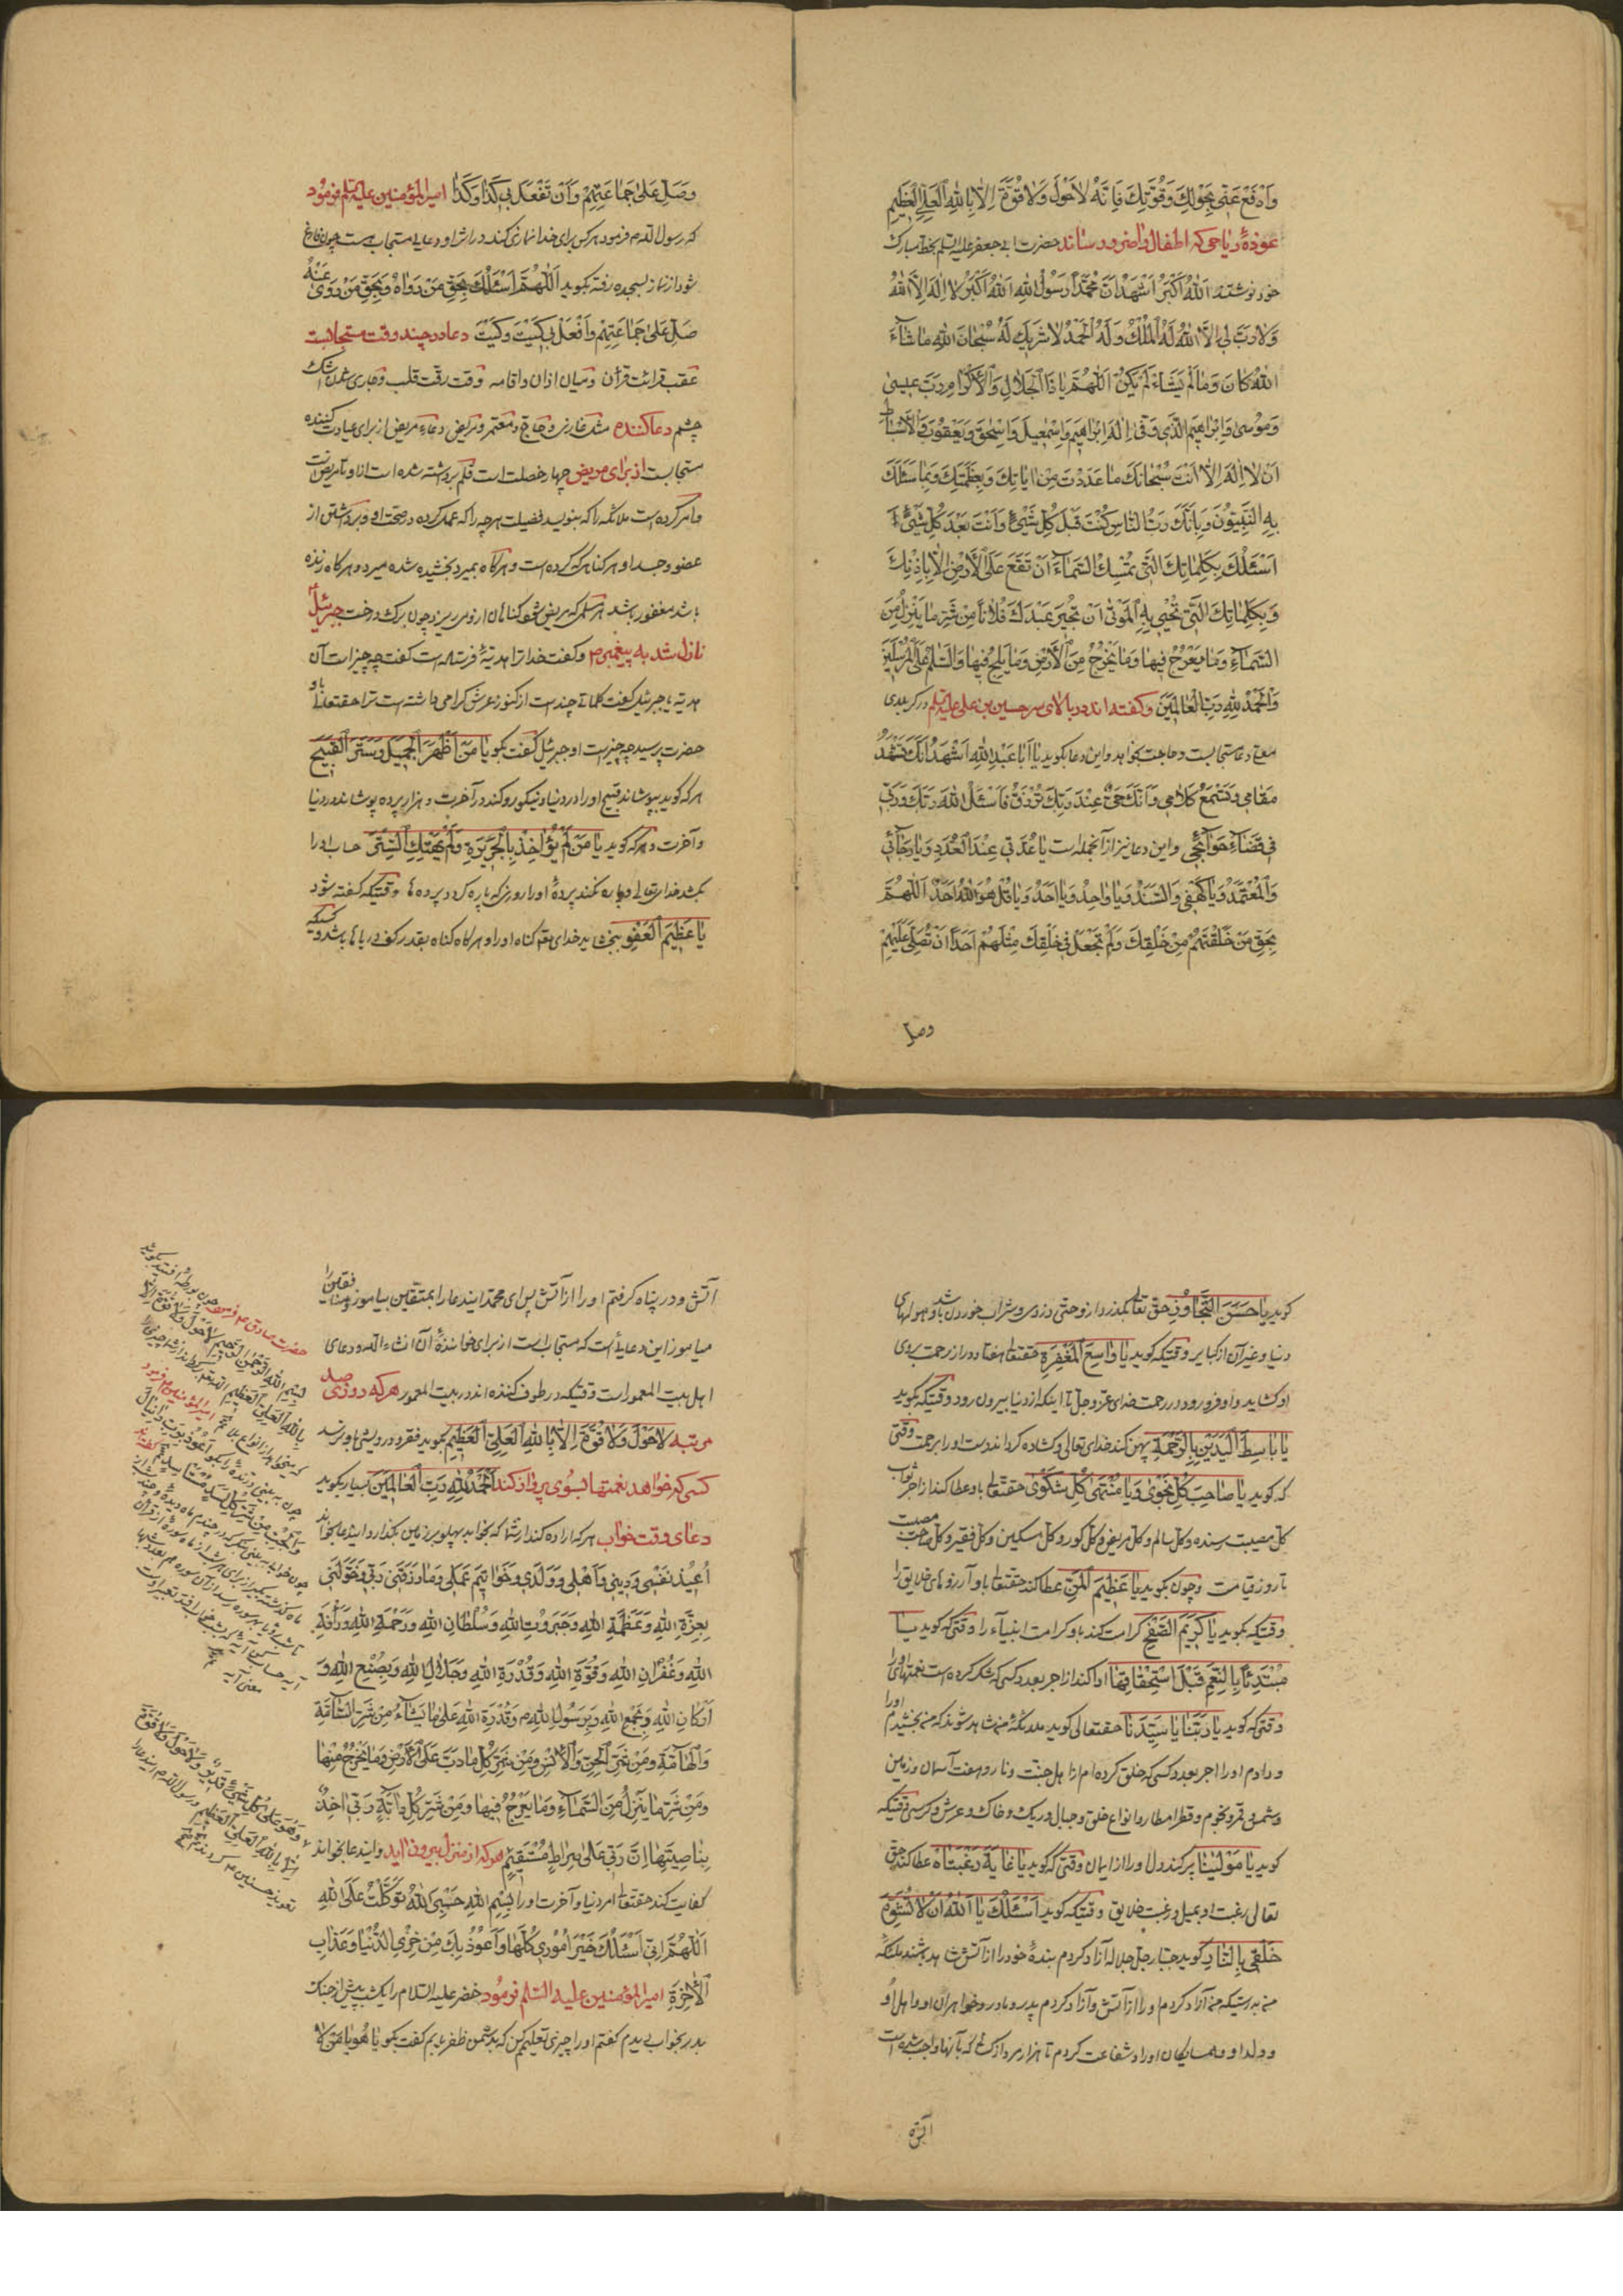 وَادْفَعْ عَنّی بِحَوْلِكَ وَقُوَّتِكَ فَاِنَّهُ لاحَوْلَ وَلا قُوَّةَ اِلّا بِاللهِ الْعَلِیِّ الْعَظیمِ
عوذهٔ ریاحی که اطفال را ضرر رساند حضرت ابی جعفر علیه السلم بخط مبارک
خود نوشته‌اند اَللهُ اَکْبَرُ اَشْهَدُ اَنَّ مُحَمَّداً رَسُولُ اللهِ اَللهُ اَکْبَرُ لا اِلهَ اِلَّا اللهُ
وَلا رَبَّ لی اِلَّا اللهُ لَهُ الْمُلْكُ وَلَهُ الْحَمْدُ لاشَریكَ لَهُ سُبْحانَ اللهِ ماشآءَ
اللهُ کانَ وَمالَمْ یَشَاءْ لَمْ یَکُنْ اَللّهُمَّ یا ذَا الْجَلالِ وَالْاِکْرامِ رَبَّ عیسی
وَمُوسی وَاِبْراهیمَ الَّذی وَفّی اِلهَ اِبْراهیمَ وَاِسْمعیلَ وَاِسْحقَ وَیَعْقُوبَ وَالْاَسْباطِ
اَنْ لا اِلهَ اِلّا اَنْتَ سُبْحانَكَ ما عَدَدْتَ مِنْ ایاتِكَ وَبِعَظَمَتِكَ وَبِما سَئَلَكَ
بِهِ النَّبِیُّونَ وَبِاَنَّكَ رَبُّ النّاسِ کُنْتَ قَبْلَ کُلِّ شَیْءٍ وَاَنْتَ بَعْدَ کُلِّ شَیْءٍ
اَسْئَلُكَ بِکَلِماتِكَ الَّتی تُمْسِكُ السَّماءَ اَنْ تَقَعَ عَلَی الْاَرْضِ اِلّا بِاِذْنِكَ
وَبِکَلِماتِكَ الَّتی تُحْیی بِهِ الْمَوْتی اَنْ تُجیرَ عَبْدَكَ فُلاناً مِنْ شَرِّ ما یَنْزِلُ مِنَ
السَّماءِ وَما یَعْرُجُ فیها وَما یَخْرُجُ مِنَ الْاَرْضِ وَما یَلِجُ فیها وَالسَّلمُ عَلَی الْمُرْسَلینَ
وَالْحَمْدُ لِلّهِ رَبِّ الْعالَمینَ وگفته‌اند در بالای سر حسین بن علی علیه السلم در کربلای
معلی دعا مستجابست و حاجت بخواهد و این دعا بگوید یا اَبا عَبْدِاللهِ اَشْهَدُ اَنَّكَ تَشْهَدُ
مَقامی وَتَسْمَعُ کَلامی وَاَنَّكَ حَیٌّ عِنْدَ رَبِّكَ تُرْزَقُ فَاسْئَلِ اللهَ رَبَّكَ وَرَبّی
فی قَضآءِ حَوآئِجی و این دعا نیز از آنجمله است یا عُدَّتی عِنْدَ الْعُدَدِ وَیا رَجآئی
وَالْمُعْتَمَدُ وَیا کَهْفی وَالسَّنَدُ وَیا واحِدُ وَیا اَحَدُ وَیا قُلْ هُوَ اللهُ اَحَدٌ اَللّهُمَّ
بِحَقِّ مَنْ خَلَقْتَهُمْ مِنْ خَلْقِكَ وَلَمْ تَجْعَلْ فی خَلْقِكَ مِثْلَهُمْ اَحَداً اَنْ تُصَلِّیَ عَلَیْهِمْ
وصل
وَصَلِّ عَلی جَماعَتِهِمْ وَاَنْ تَفْعَلَ بی کَذا وَکَذا امیرالمؤمنین علیه السلم فرمود
که رسول الله ص فرمود هر کس برای خدا نمازی کند در اثر او دعای مستجاب هست چون فارغ
شود از نماز بسجده رفته بگوید اَللّهُمَّ اَسْئَلُكَ بِحَقِّ مَنْ رَواهُ وَبِحَقِّ مَنْ رُوِیَ عَنْهُ
صَلِّ عَلی جَماعَتِهِمْ وَافْعَلْ بی کَیْتَ وَکَیْتَ دعا در چند وقت مستجابست
عقب قرائت قرآن و میان اذان و اقامه و وقت رقّت قلب و جاری شدن اشک
چشم دعا کننده مثل غازی و حاج و معتمر و مریض و دعاء مریض از برای عیادت کننده
مستجابست از برای مریض چهار خصلت است قلم برداشته شده است از او تا مریض است
و امر کرده است ملائکه را که بنویسد فضیلت هرچه را که عمل کرده در صحت او و برداشتن از
عضو و جسد او هر گناه که کرده است و هرگاه بمیرد بخشیده شده میرد و هرگاه زنده
باشد مغفور باشد هر مسلمی که مریض شود گناهان از وی میریزد چون برک درخت جبرئیل
نازل شد به پیغمبر ص و گفت خدا ترا هدیهٔ فرستاده است گفت چه چیز است آن
هدیه یا جبرئیل گفت کلماتی چند است از کنوز عرش گرامی داشته است ترا حقتعالی باو
حضرت پرسید چه چیز است او جبرئیل گفت بگو یا مَنْ اَظْهَرَ الْجَمیلَ وَسَتَرَ الْقَبیحَ
هر که گوید بپوشاند قبیح او را در دنیا و نیکو رو کند در آخرت و هزار پرده پوشاند در دنیا
و آخرت و هر که گوید یا مَنْ لَمْ یُؤاخِذْ بِالْجَریرَةِ وَلَمْ یَهْتِكِ السِّتْرَ حساب او را
نکند خدایتعالی و پاره نکند پردهٔ او را روزیکه پاره گردد پرده‌ها و وقتیکه گفته شود
یا عَظیمَ الْعَفْوِ ببخشاید خدای هم گناه او را و هرگاه گناه بقدر کف دریاها باشد و کسیکه
گوید یا حَسَنَ التَّجاوُزِ حق تعالی بگذرد از او حتی دزدی و شراب خوردن باشد و هولهای
دنیا و غیر آن از کبایر و وقتیکه گوید یا واسِعَ الْمَغْفِرَةِ حقتعالی هفتاد در از رحمت بروی
او گشاید و او فرو رود در رحمت خدای عزوجل تا اینکه از دنیا بیرون رود و وقتیکه گوید
یا باسِطَ الْیَدَیْنِ بِالرَّحْمَةِ پهن کند خدای تعالی و گشاده گرداند دست او را برحمت و وقتی
که گوید یا صاحِبَ کُلِّ نَجْوی وَیا مُنْتَهی کُلِّ شَکْوی حقتعالی باو عطا کند از اجر ثواب
کل مصیبت رسنده و کل سالم و کل مریض و کل کور و کل مسکین و کل فقیر و کل صاحب مصیبت
تا روز قیامت و چون بگوید یا عَظیمَ الْمَنِّ عطا کند حقتعالی باو آرزوهای خلایق را
وقتیکه بگوید یا کَریمَ الصَّفْحِ کرامت کند باو کرامت انبیآء را وقتی که گوید یا
مُبْتَدِئاً بِالنِّعَمِ قَبْلَ اسْتِحْقاقِها او را کند از اجر بعدد کسی که شکر کرده است نعمتهای او را
وقتی که گوید یا رَبَّنا یا سَیِّدَنا حقتعالی گوید ملائکه من شاهد شوید که من بخشیدم او را
و دادم او را اجر بعدد کسی که خلق کرده‌ام از اهل جنت و نار و هفت آسمان و زمین
و شمس و قمر و نجوم و قطر امطار و انواع خلق و جبال و ریک و خاک و عرش و کرسی وقتیکه
گوید یا مَوْلینا پر کند دل او را از ایمان وقتی که گوید یا غایَةَ رَغْبَتاهُ عطا کند حق
تعالی رغبت او بمیل و رغبت خلایق وقتیکه گوید اَسْئَلُكَ یا اَللهُ اَنْ لا تُشَوِّهَ
خَلْقی بِالنّارِ گوید جبار جل جلاله آزاد کردم بندهٔ خود را از آتش شاهد باشید ملئکه
من بدرستیکه من آزاد کردم او را از آتش و آزاد کردم پدر و مادر و خواهران او و اهل او
و ولد او و همسایگان او را و شفاعت کردم تا هزار مرد از کسانی که بآنها واجب شده است
آتش
آتش و در پناه گرفتم او را از آتش پس ای محمد ایندعا را بمتقین بیاموز و منافقین را
میاموز این دعایی است که مستجاب است از برای خوانندهٔ آن انشاءالله و دعای
اهل بیت المعمور است وقتیکه در طوف کننده‌اند در بیت المعمور هر که در روزی صد
مرتبه لاحَوْلَ وَلا قُوَّةَ اِلّا بِاللهِ الْعَلِیِّ الْعَظیمِ بگوید فقر و درویشی باو نرسد
کسی که خواهد نعمتها بسوی پرواز کند اَلْحَمْدُ لِلّهِ رَبِّ الْعالَمینَ بسیار بگوید
دعای وقت خواب هر که اراده کند از شما که بخوابد پهلو بر زمین بگذارد و ایندعا بخواند
اُعیذُ نَفْسی وَدینی وَاَهْلی وَوَلَدی وَخَواتیمَ عَمَلی وَما رَزَقَنی رَبّی وَخَوَّلَنی
بِعِزَّةِ اللهِ وَعَظَمَةِ اللهِ وَجَبَرُوتِ اللهِ وَسُلْطانِ اللهِ وَرَحْمَةِ اللهِ وَرَأْفَةِ
اللهِ وَغُفْرانِ اللهِ وَقُوَّةِ اللهِ وَقُدْرَةِ اللهِ وَجَلالِ اللهِ وَبِصُنْعِ اللهِ وَ
اَرْکانِ اللهِ وَبِجَمْعِ اللهِ وَبِرَسُولِ اللهِ ص وَقُدْرَةِ اللهِ عَلی ما یَشآءُ مِنْ شَرِّ السّآمَّةِ
وَالْهآمَّةِ وَمِنْ شَرِّ الْجِنِّ وَالْاِنْسِ وَمِنْ شَرِّ کُلِّ ما دَبَّ عَلَی الْاَرْضِ وَما یَخْرُجُ مِنْها
وَمِنْ شَرِّ ما یَنْزِلُ مِنَ السَّمآءِ وَما یَعْرُجُ فیها وَمِنْ شَرِّ کُلِّ دآبَّةٍ رَبّی اخِذٌ
بِناصِیَتِها اِنَّ رَبّی عَلی صِراطٍ مُسْتَقیمٍ هر که از منزل بیرون آید و ایندعا بخواند
کفایت کند حقتعالی امر دنیا و آخرت او را بِسْمِ اللهِ حَسْبِیَ اللهُ تَوَکَّلْتُ عَلَی اللهِ
اَللّهُمَّ اِنّی اَسْئَلُكَ خَیْرَ اُمُوری کُلِّها وَاَعُوذُ بِكَ مِنْ خِزْیِ الدُّنْیا وَعَذابِ
الْاخِرَةِ امیرالمؤمنین علیه السلم فرمود خضر علیه السلام را یکشب پیش از جنک
بدر بخواب دیدم گفتم او را چیزی تعلیم کن که بدشمن ظفر یابم گفت بگو یا هُوَ یا مَنْ لا
حضرت صادق ع فرمود چون بورطه افتید بگوید
بِسْمِ اللهِ الرَّحْمنِ الرَّحیمِ لاحَوْلَ وَلا قُوَّةَ اِلّا
بِاللهِ الْعَلِیِّ الْعَظیمِ
امیرالمؤمنین ع فرمود
وَهُوَ عَلی کُلِّ شَیْءٍ قَدیرٌ وَلاحَوْلَ وَلا قُوَّةَ
اِلّا بِاللهِ الْعَلِیِّ الْعَظیمِ و رسول الله ص ایندعا را
تعویذ حسنین ع کردند